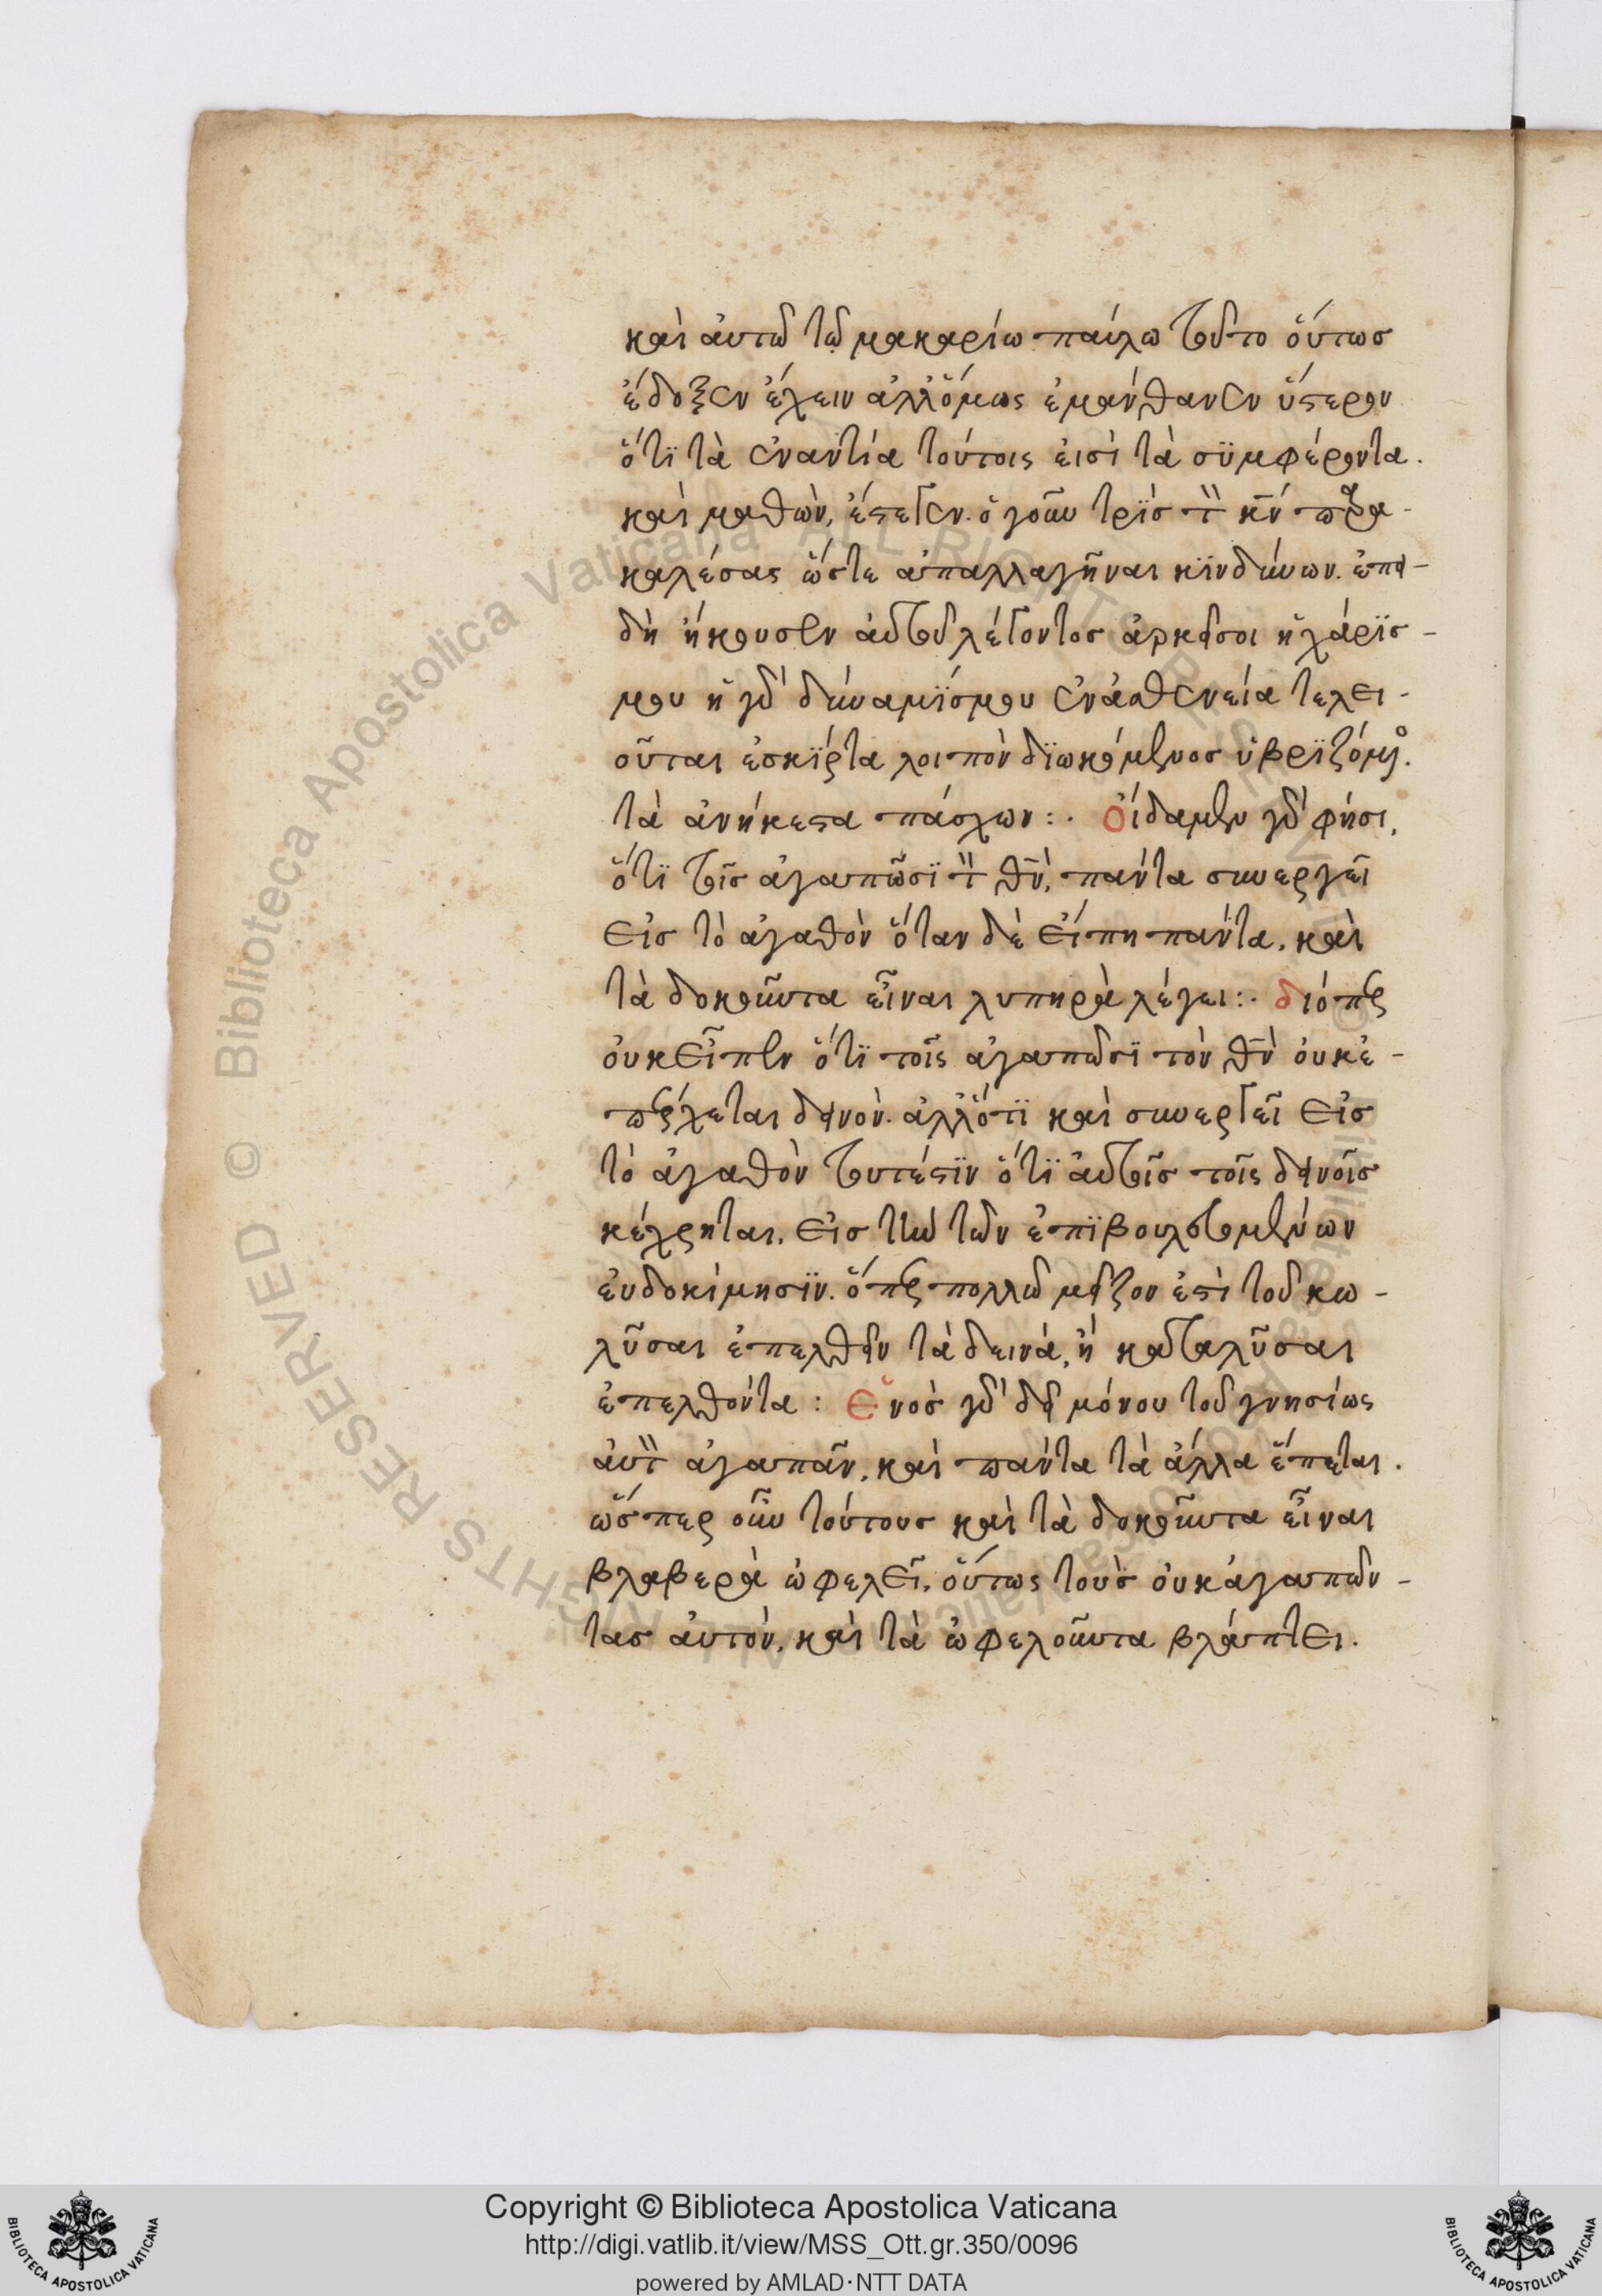 καὶ ἀυτῶ τῶ μακαρίω παύλω τοῦτο ὅυτωσ
ἔδοξεν ἔχειν ἀλλ' ὅμως ἐμάνθανεν ὕστερον
ὅτϊ τὰ ἐναντία τούτοις ἐισὶ τὰ σϋμφέροντα.
καὶ μαθὼν, ἔστεγεν. ὁ γοῦν τρὶσ τὸν κ̅ν̅ παρα-
καλέσας ὥστε ἀπαλλαγῆναι κϊνδύνων. ἐπει-
δὴ ἤκουσεν ἀυτοῦ λέγοντοσ ἀρκεῖ σοι ἡ χάρϊσ-
μου ἡ γὰρ δύναμϊσ μου ἐν ἀσθενεία τελει-
οῦται ἐσκϊρτα λοιπὸν δϊωκόμενοσ ὑβρϊζόμενος.
τὰ ἀνήκεστα πάσχων:. Οἴδαμεν γὰρ φήσι,
ὅτϊ τοῖσ ἀγαπῶσϊ τὸν θ̅ν̅, πάντα συνεργεῖ
εἰσ τὸ ἀγαθὸν ὅταν δὲ εἴπη πάντα, καὶ
τὰ δοκοῦντα εἶναι λυπηρὰ λέγει:. διόπερ
ὀυκ εἶπεν ὅτϊ τοῖς ἀγαπῶσϊ τὸν θ̅ν̅ ὀυκ ἐ-
πέρχεται δεινὸν. ἀλλ' ὅτϊ καὶ συνεργεῖ εἰσ
τὸ ἀγαθὸν τουτέστϊν ὅτϊ ἀυτοῖσ τοῖς δεινοῖσ
κέχρηται, εἰσ τὴν τῶν ἐπϊβουλευομένων
ἐυδοκίμησϊν. ὅπερ πολλῶ μεῖζον ἐστὶ τοῦ κω-
λῦσαι ἐπελθεῖν τὰ δεινά, ἢ καταλῦσαι
ἐπελθόντα: Ἑνὸσ γὰρ δεῖ μόνου τοῦ γνησίως
ἀυτὸν ἀγαπᾶν, καὶ πάντα τὰ ἄλλα ἕπεται.
ὥσπερ οὖν τούτουσ καὶ τὰ δοκοῦντα εἶναι
βλαβερὰ ὠφελεῖ, ὅυτως τοὺσ ὀυκ ἀγαπῶν-
τασ ἀυτὸν, καὶ τὰ ὠφελοῦντα βλάπτει.
© Biblioteca Apostolica Vaticana ALL RIGHTS RESERVED
Copyright © Biblioteca Apostolica Vaticana
http://digi.vatlib.it/view/MSS_Ott.gr.350/0096
powered by AMLAD·NTT DATA
BIBLIOTECA APOSTOLICA VATICANA
BIBLIOTECA APOSTOLICA VATICANA